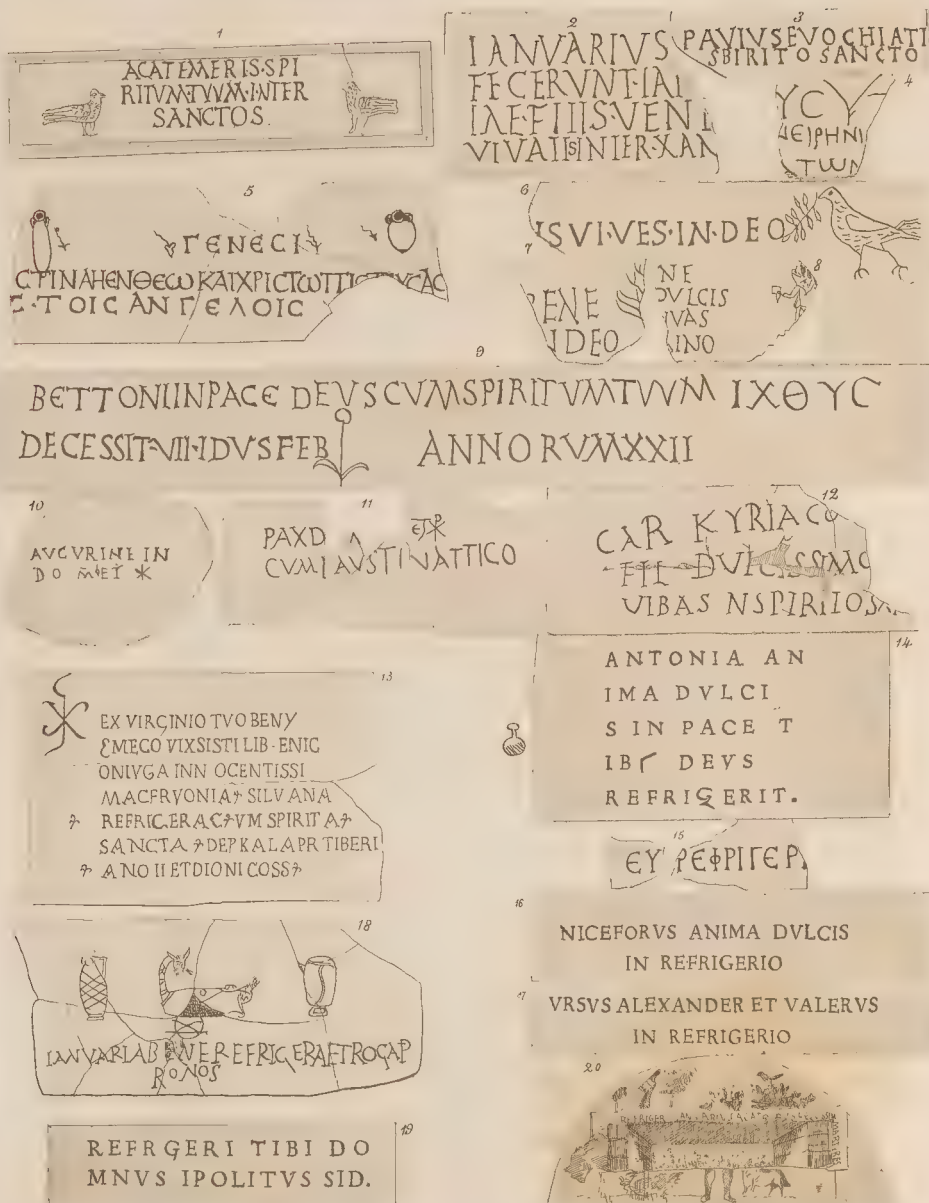 1
ACATEMERIS·SPI
RITVM·TVVM·INTER
SANCTOS.
2
IANVARIVS
FECERVNT·IAI
IAE·FIIIS·VENI
VIVAII
3
PAVIVSEVOCHIATI
SBIRITOSANCTO
4
ΥCΥ
ΤWΝ
5
ΓΕΝΕCΙ
C·ΤΟΙCΑΝΓΕΛΟΙC
6
ISVI·VES·IN·DEO
7
PENE
NDEO
8
NE
DVLCIS
IVAS
INO
9
BETTONIINPACE DEVSCVMSPIRITVMTVVM ΙΧΘΥC
DECESSIT·VII·IDVSFEB ANNORVMXXII
10
AVGVRINE IN
11
PAXD
CVMFAVSTINATTICO
12
CAR KYRIACO
FIL DVLCISSIMO
VIBAS NSPIRITOSA
13
EX VIRGINIO TVO BENY
EMECO VIXSISTI LIB·ENIC
ONIVGA INNOCENTISSI
MACERVONIA SILVANA
REFRIGERA CVM SPIRITA
SANCTA DEPKALAPRTIBERI
ANO II ETDIONI COSS
14
ANTONIA AN
IMA DVLCI
S IN PACE T
IBI DEVS
REFRIGERIT.
15
ΕΥ ΡΕΦΡΙΓΕΡ
16
NICEFORVS ANIMA DVLCIS
IN REFRIGERIO
17
VRSVS ALEXANDER ET VALERVS
IN REFRIGERIO
18
IANVARIABENEREFRIGERAETROGAP
RONOS
19
REFRGERI TIBI DO
MNVS IPOLITVS SID.
20